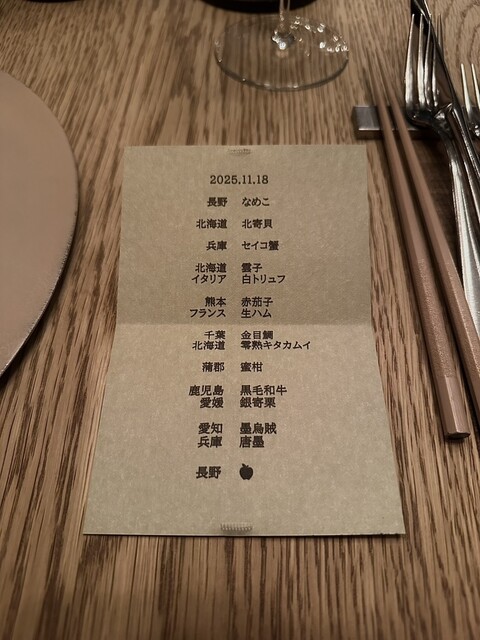 2025.11.18
長野 なめこ
北海道 北寄貝
兵庫 セイコ蟹
北海道 雲子
イタリア 白トリュフ
熊本 赤茄子
フランス 生ハム
千葉 金目鯛
北海道 零熟キタカムイ
蒲郡 蜜柑
鹿児島 黒毛和牛
愛媛 銀寄栗
愛知 墨烏賊
兵庫 唐墨
長野